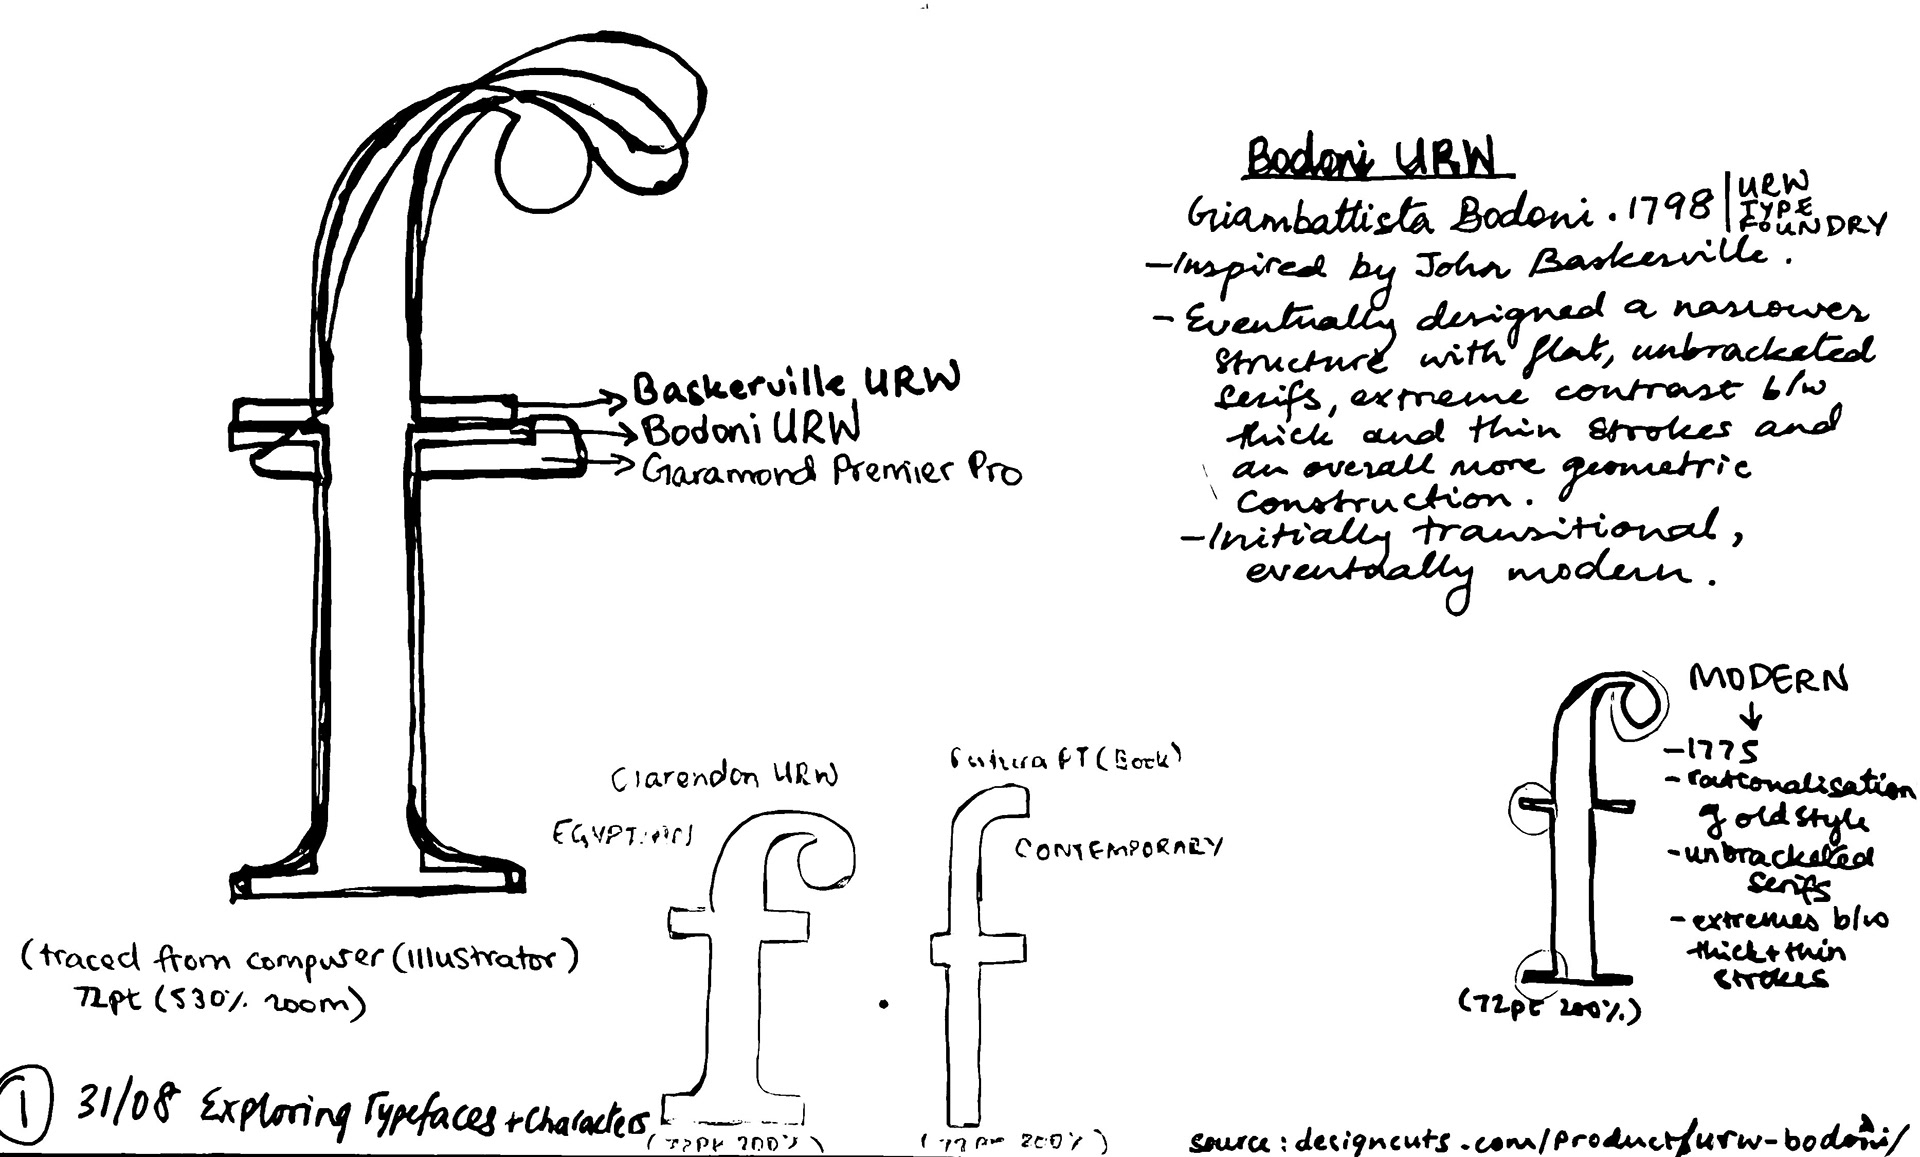 Bodoni URW
Giambattista Bodoni . 1798 | URW TYPE FOUNDRY
- Inspired by John Baskerville .
- Eventually designed a narrower
structure with flat, unbracketed
serifs, extreme contrast b/w
thick and thin strokes and
an overall more geometric
construction .
- Initially transitional ,
eventually modern .
Baskerville URW
Bodoni URW
Garamond Premier Pro
MODERN
- 1775
- rationalisation
of old style
- unbracketed
serifs
- extremes b/w
thick + thin
strokes
(72pt 200%)
Clarendon URW
EGYPTIAN
(72pt 200%)
Futura PT (Book)
CONTEMPORARY
(72pt 200%)
(traced from computer (Illustrator)
72pt (530% zoom)
1 31/08 Exploring Typefaces + Characters
source : designcuts.com/product/urw-bodoni/